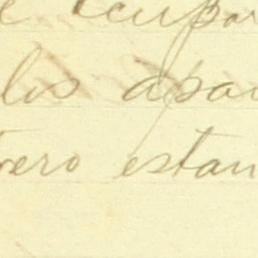 e ocupar
los apar
pero estan